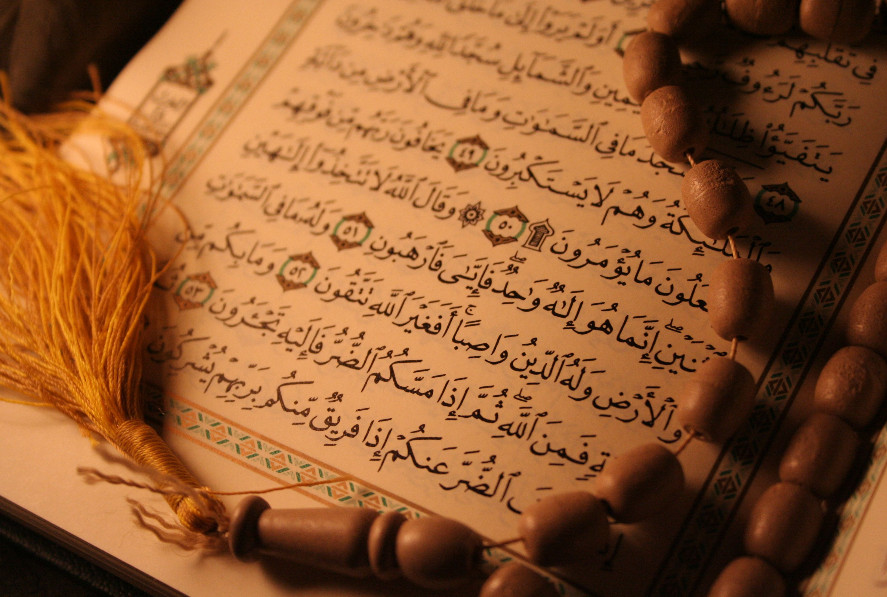 فِي تَقَلُّبِهِمْ
رَبَّكُمْ لَرَءُوفٌ أَوَلَمْ يَرَوْا۟ إِلَىٰ مَا خَلَقَ
يَتَفَيَّؤُا۟ ظِلَٰلُهُۥ وَٱلشَّمَآئِلِ سُجَّدًا لِّلَّهِ وَهُمْ دَٰخِرُونَ
٤٨ مَا فِى ٱلسَّمَٰوَٰتِ وَمَا فِى ٱلْأَرْضِ مِن دَآبَّةٍ
وَٱلْمَلَٰٓئِكَةُ وَهُمْ لَا يَسْتَكْبِرُونَ ٤٩ يَخَافُونَ رَبَّهُم مِّن فَوْقِهِمْ
وَيَفْعَلُونَ مَا يُؤْمَرُونَ ۩ ٥٠ ۞ وَقَالَ ٱللَّهُ لَا تَتَّخِذُوٓا۟ إِلَٰهَيْنِ
ٱثْنَيْنِ ۖ إِنَّمَا هُوَ إِلَٰهٌ وَٰحِدٌ ۖ فَإِيَّٰىَ فَٱرْهَبُونِ ٥١ وَلَهُۥ مَا فِى ٱلسَّمَٰوَٰتِ
وَٱلْأَرْضِ وَلَهُ ٱلدِّينُ وَاصِبًا ۚ أَفَغَيْرَ ٱللَّهِ تَتَّقُونَ ٥٢ وَمَا بِكُم مِّن
فَمِنَ ٱللَّهِ ۖ ثُمَّ إِذَا مَسَّكُمُ ٱلضُّرُّ فَإِلَيْهِ تَجْـَٔرُونَ ٥٣
ٱلضُّرَّ عَنكُمْ إِذَا فَرِيقٌ مِّنكُم بِرَبِّهِمْ يُشْرِكُونَ